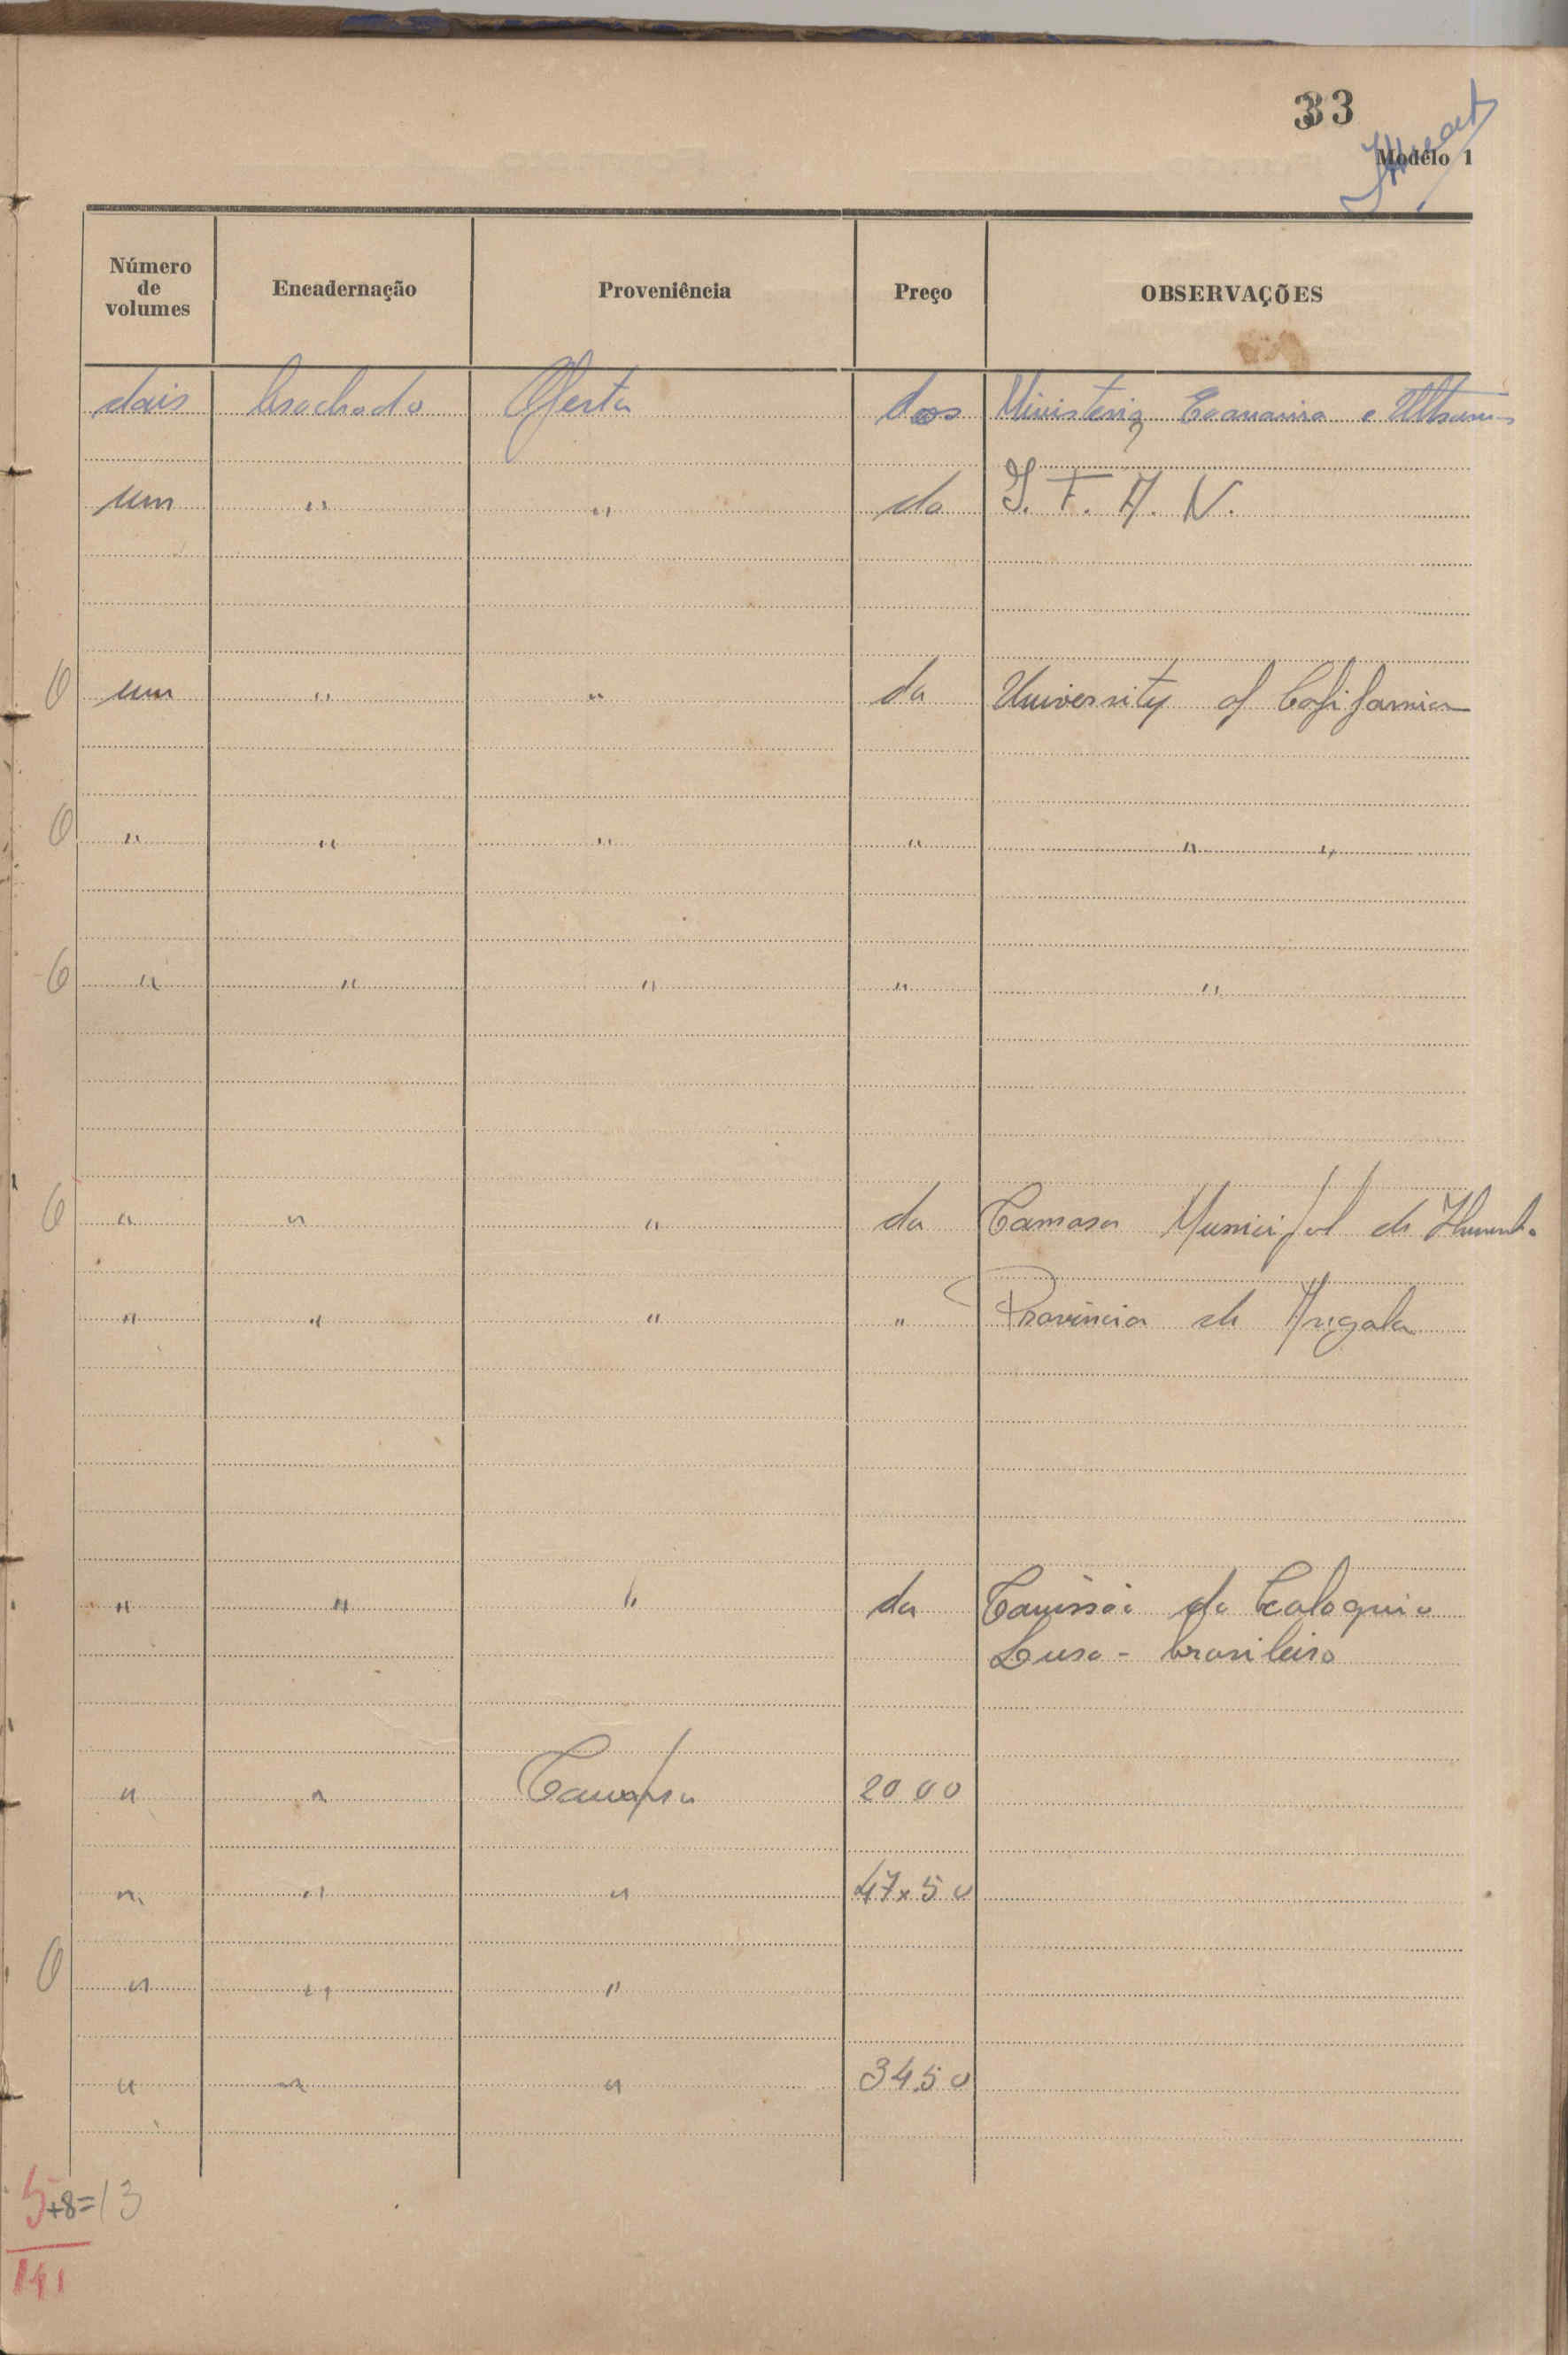 33
Modêlo 1
Número de volumes Encadernação Proveniência Preço OBSERVAÇÕES
dois brochado Oferta dos Ministerios Economia e
um " " do I. F. A. N.
0 um " " da University of California
0 " " " " " "
6 " " " " "
6 " " " da Camara Municipal de
" " " " Provincia de Angola
" " " da Comissão do Coloquio
Luso - brasileiro
" " Compra 20 00
" " " 47x50
0 " " "
" " " 34.50
5+8=13
141